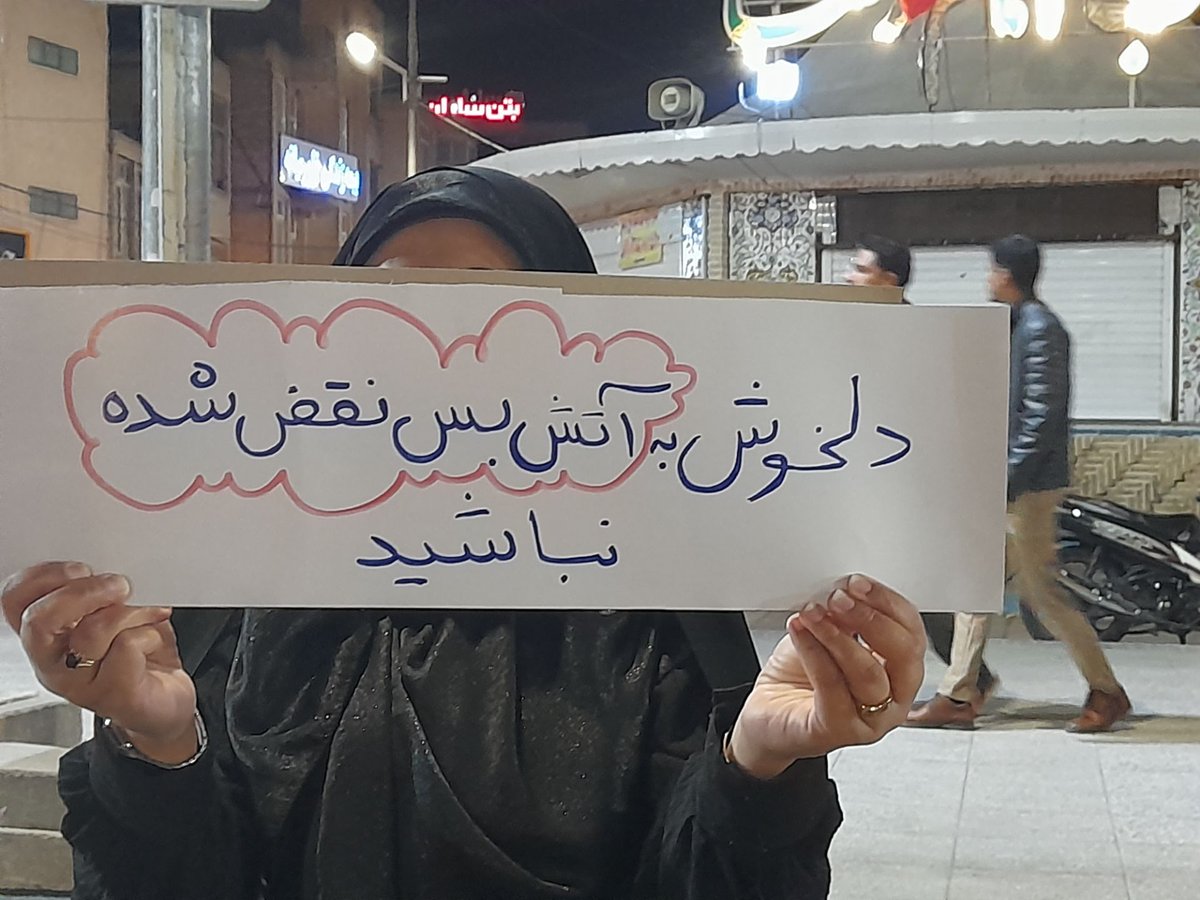 دلخوش به آتش بس نقض شده
نباشید